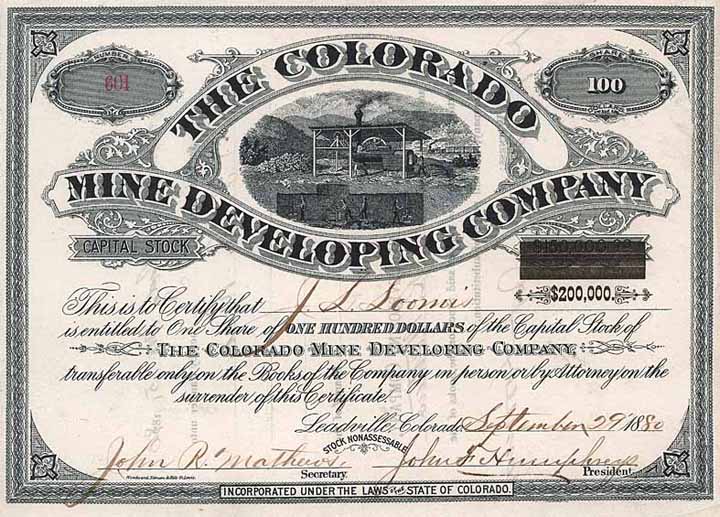 NUMBER
601
SHARE
100
THE COLORADO
MINE DEVELOPING COMPANY
CAPITAL STOCK
$150,000.00
$200,000.
This is to Certify that J. L. Loomis
is entitled to One Share of ONE HUNDRED DOLLARS of the Capital Stock of
THE COLORADO MINE DEVELOPING COMPANY,
transferable only on the Books of the Company in person or by Attorney on the
surrender of this Certificate.
Leadville, Colorado September 29 1880
STOCK NONASSESSABLE
John R. Mathews
Secretary.
John F. Humphreys
President.
INCORPORATED UNDER THE LAWS OF THE STATE OF COLORADO.